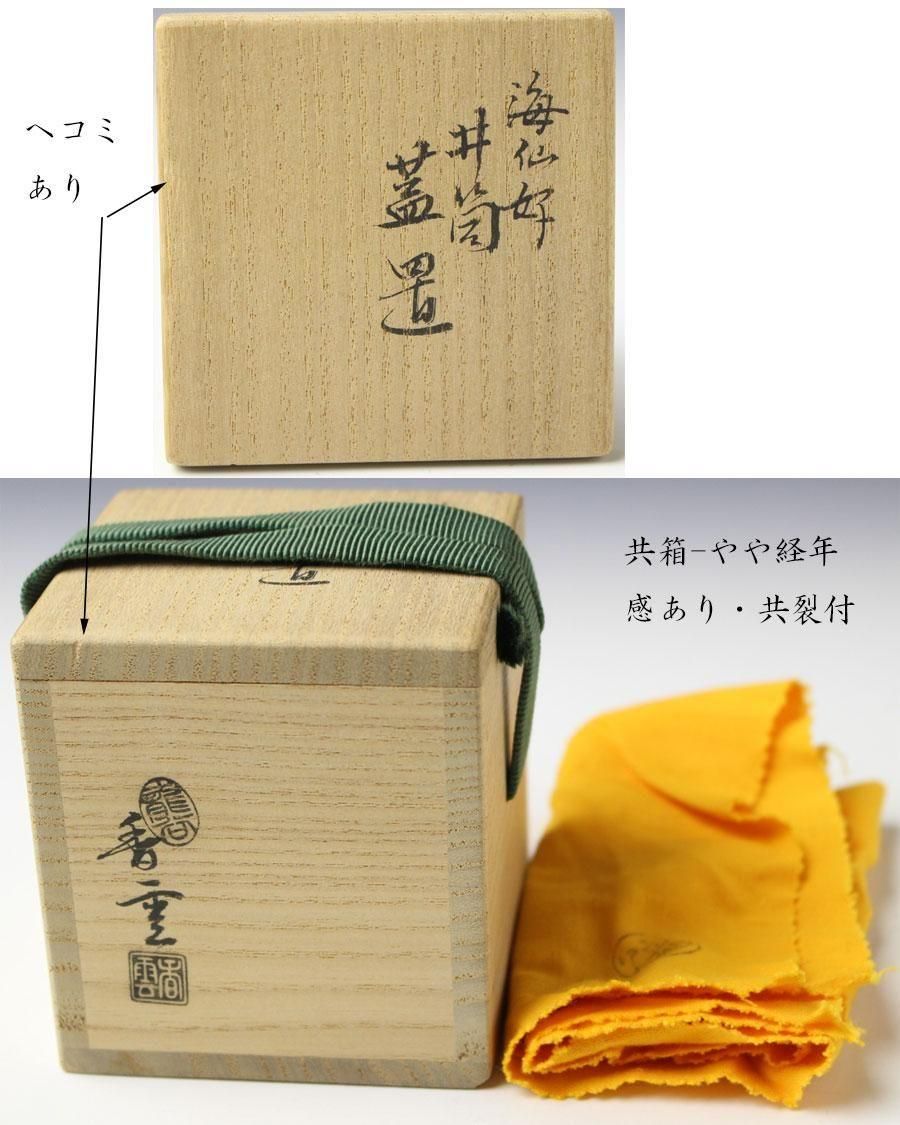 海仙好
井筒
蓋置
ヘコミ
あり
置
共箱−やや経年
感あり・共裂付
香雲
香雲